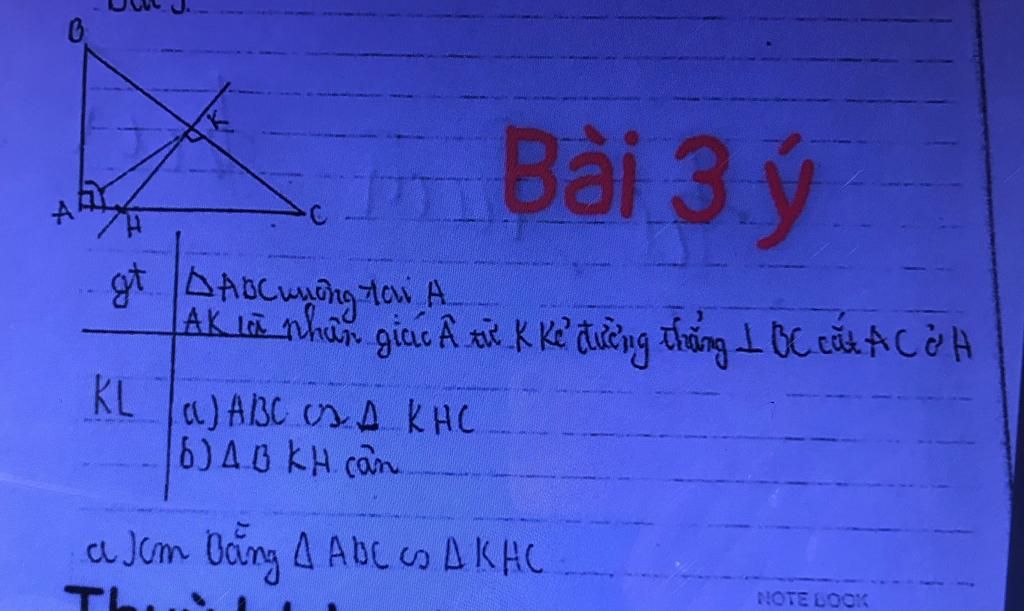 Bài 3.
B
K
Bài 3 ý
A
H
C
gt
ΔABC vuông tại A
AK là phân giác Â từ K kẻ đường thẳng ⊥ BC cắt AC ở H
KL
a) ABC ∽ Δ KHC
b) Δ B KH cân
a) cm Δ ABC ∽ Δ KHC
NOTE BOOK